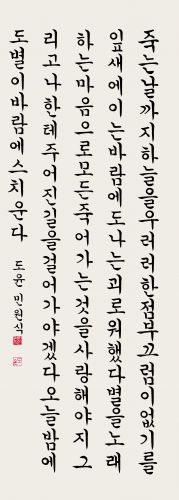 죽는날까지하늘을우러러한점부끄럼이없기를
잎새에이는바람에도나는괴로워했다별을노래
하는마음으로모든죽어가는것을사랑해야지그
리고나한테주어진길을걸어가야겠다오늘밤에
도별이바람에스치운다
도윤 민원식